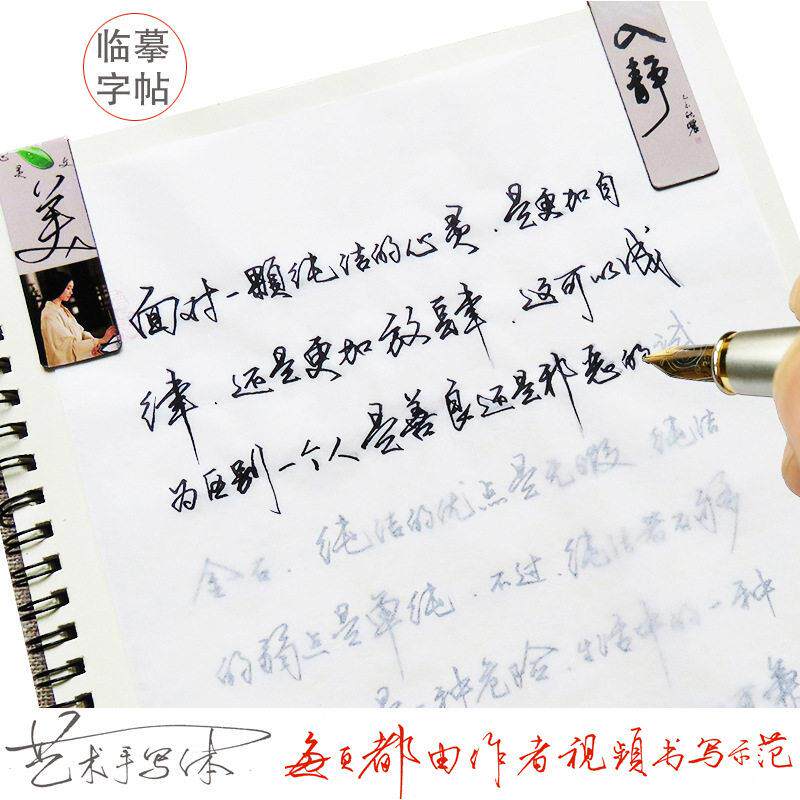 临摹
字帖
入静
美人
面对一颗纯洁的心灵,是更加自
律,还是更加放肆,这可以成
为区别一个人是善良还是邪恶的试
金石,纯洁的优点是无瑕,纯洁
的弱点是单纯,不过,纯洁若不够
是一种危险,生活中的一种
艺术手写体
每页都由作者视频书写示范